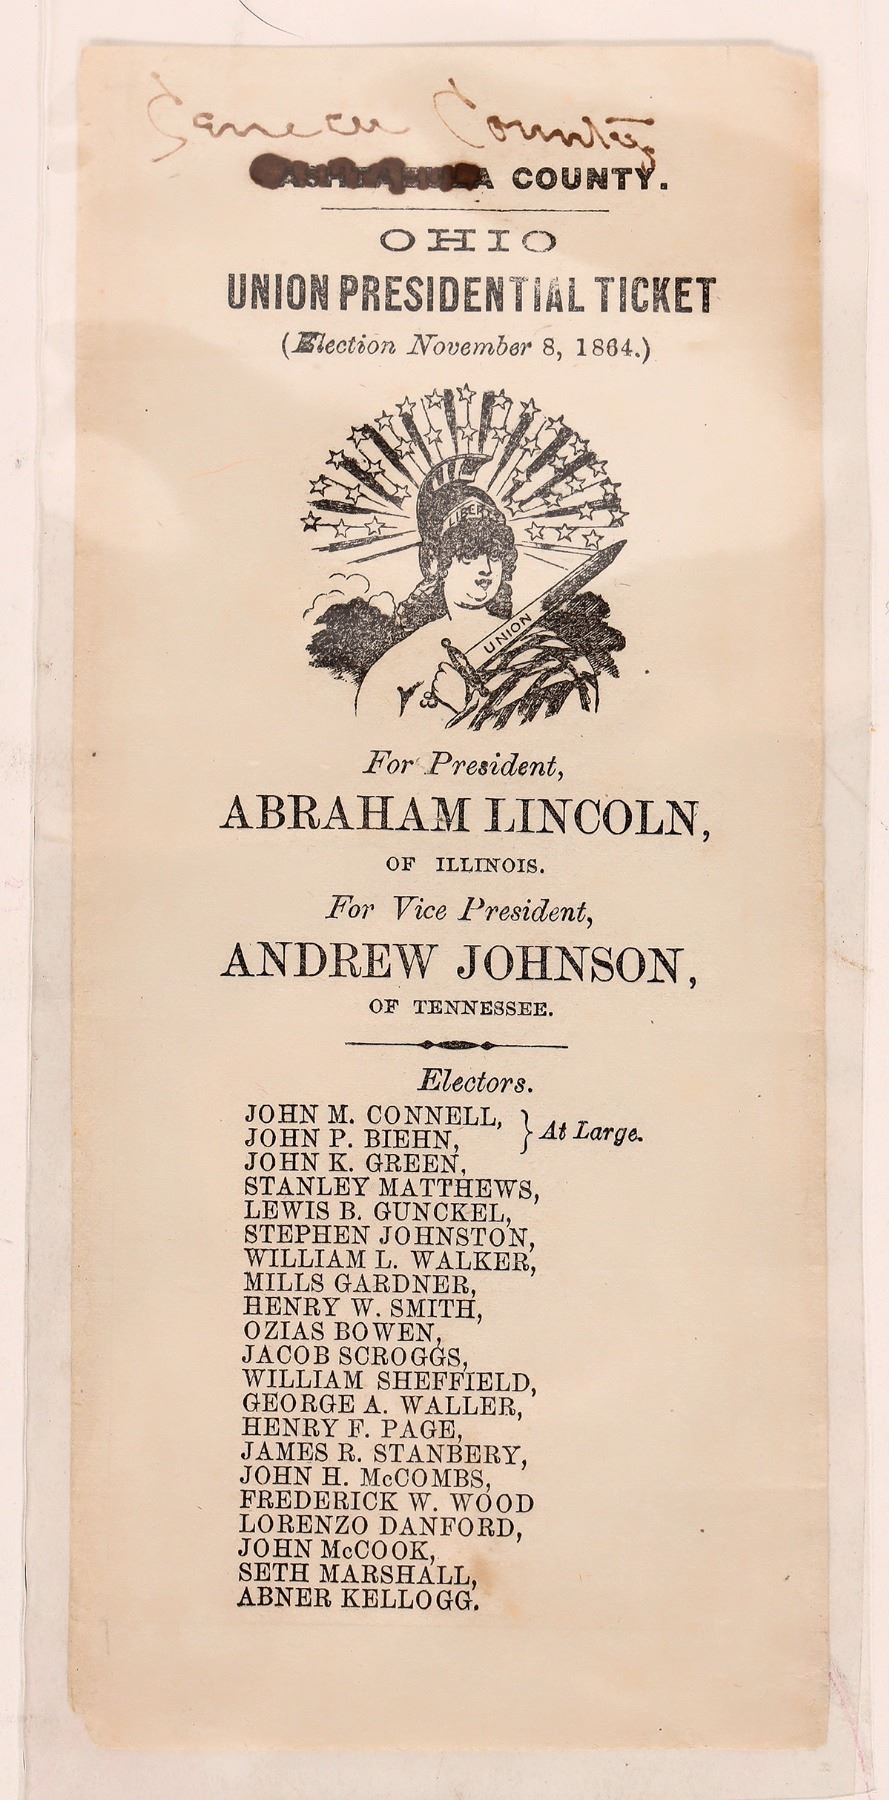 Seneca County
COUNTY.
OHIO
UNION PRESIDENTIAL TICKET
(Election November 8, 1864.)
LIBERTY
UNION
For President,
ABRAHAM LINCOLN,
OF ILLINOIS.
For Vice President,
ANDREW JOHNSON,
OF TENNESSEE.
Electors.
JOHN M. CONNELL,
JOHN P. BIEHN,
} At Large.
JOHN K. GREEN,
STANLEY MATTHEWS,
LEWIS B. GUNCKEL,
STEPHEN JOHNSTON,
WILLIAM L. WALKER,
MILLS GARDNER,
HENRY W. SMITH,
OZIAS BOWEN,
JACOB SCROGGS,
WILLIAM SHEFFIELD,
GEORGE A. WALLER,
HENRY F. PAGE,
JAMES R. STANBERY,
JOHN H. McCOMBS,
FREDERICK W. WOOD
LORENZO DANFORD,
JOHN McCOOK,
SETH MARSHALL,
ABNER KELLOGG.